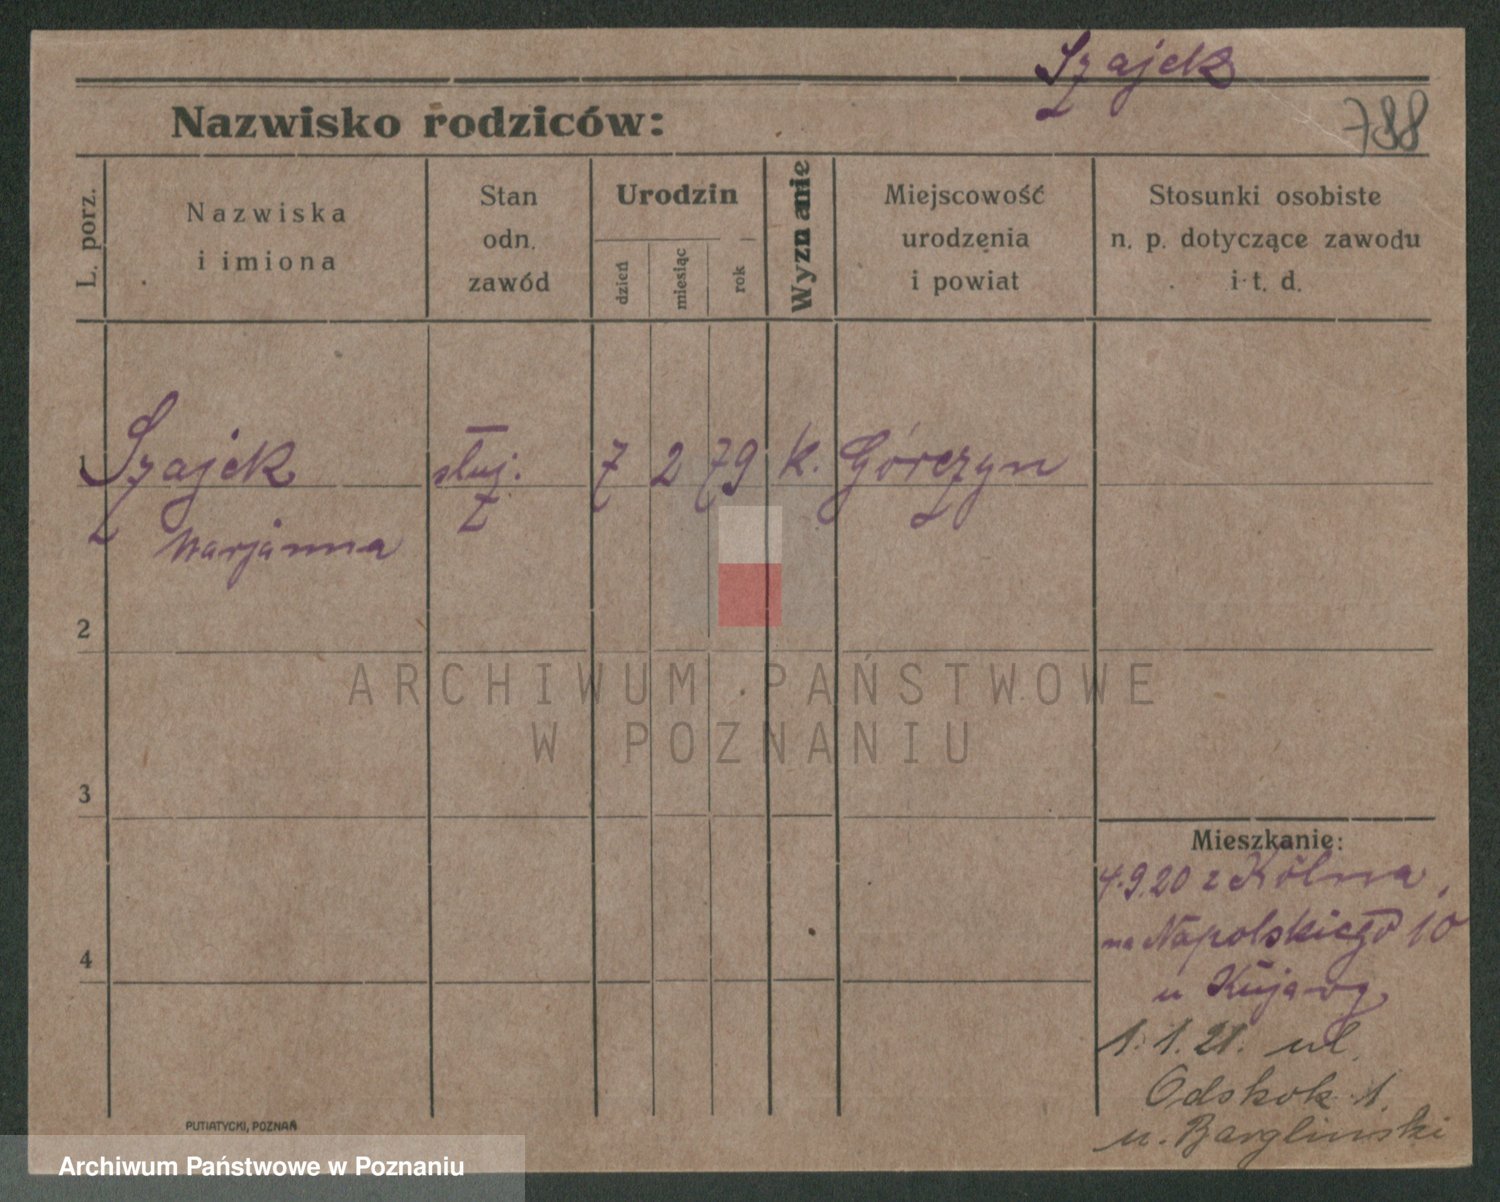 Szajek
Nazwisko rodziców:
788
L. porz.
Nazwiska
i imiona
Stan
odn.
zawód
Urodzin
dzień
miesiąc
rok
Wyznanie
Miejscowość
urodzenia
i powiat
Stosunki osobiste
n. p. dotyczące zawodu
i t. d.
1
Szajek
Marjanna
służ.
7
2
79
k.
Górczyn
2
3
4
Mieszkanie:
4.9.20 z Kölna
na Napolskiego 10
u
1.1.21. ul.
Odskok 1.
u. Bargliński
PUTIATYCKI, POZNAŃ
ARCHIWUM PAŃSTWOWE
W POZNANIU
Archiwum Państwowe w Poznaniu